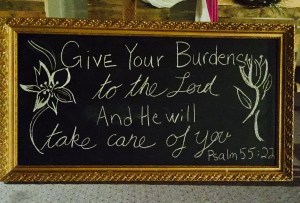 Give Your Burdens
to the Lord
And He will
take care of you
Psalm 55:22